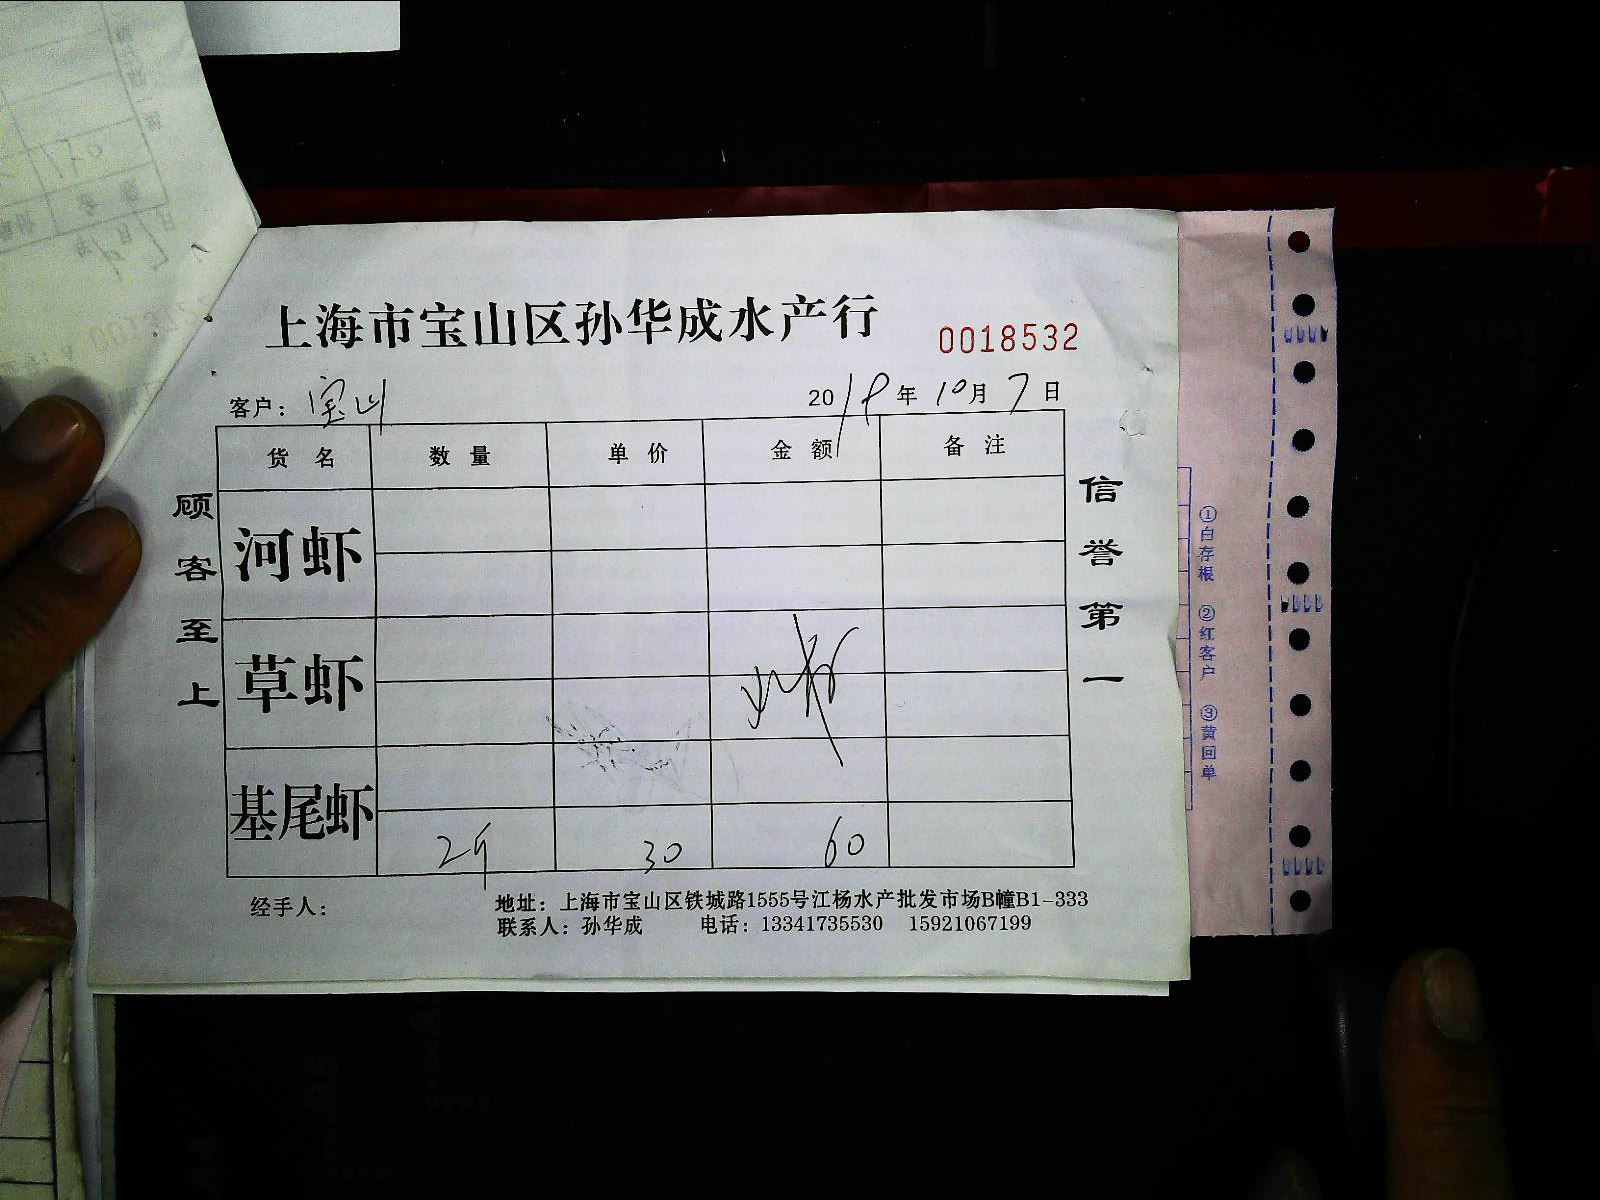 上海市宝山区孙华成水产行
0018532
客户： 宝山
2018年10月7日
货名 数量 单价 金额 备注
河虾
草虾
基尾虾 2斤 30 60
顾客至上
信誉第一
经手人：
地址：上海市宝山区铁城路1555号江杨水产批发市场B幢B1-333
联系人：孙华成 电话：13341735530 15921067199
①白存根 ②红客户 ③黄回单